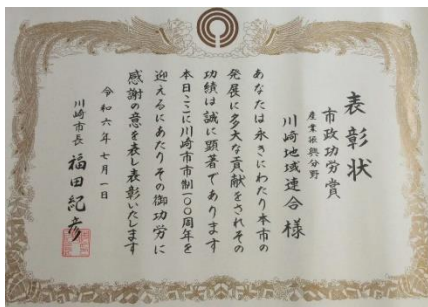 表彰状
市政功労賞
産業振興分野
川崎地域連合 様
あなたは永きにわたり本市の
発展に多大な貢献をされその
功績は誠に顕著であります
本日ここに川崎市市制一〇〇周年を
迎えるにあたりその御功労に
感謝の意を表し表彰いたします
令和六年七月一日
川崎市長 福田紀彦